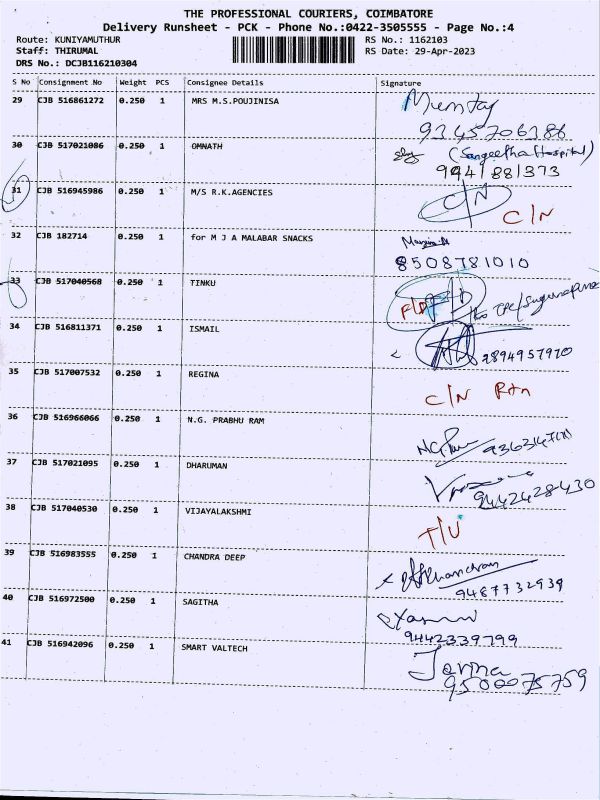 THE PROFESSIONAL COURIERS, COIMBATORE
Delivery Runsheet - PCK - Phone No.:0422-3505555 - Page No.:4
Route: KUNIYAMUTHUR RS No.: 1162103
Staff: THIRUMAL RS Date: 29-Apr-2023
DRS No.: DCJB116210304
S No Consignment No Weight PCS Consignee Details Signature
29 CJB 516861272 0.250 1 MRS M.S.POUJINISA Mumtaj
9345706386
30 CJB 517021086 0.250 1 OMNATH (Sangeetha Hospital)
9941881373
31 CJB 516945986 0.250 1 M/S R.K.AGENCIES C/N
C/N
32 CJB 182714 0.250 1 for M J A MALABAR SNACKS
8508781010
33 CJB 517040568 0.250 1 TINKU
34 CJB 516811371 0.250 1 ISMAIL
9894957970
35 CJB 517007532 0.250 1 REGINA
C/N Rtn
36 CJB 516966066 0.250 1 N.G. PRABHU RAM
37 CJB 517021095 0.250 1 DHARUMAN
9442428430
38 CJB 517040530 0.250 1 VIJAYALAKSHMI
T/U
39 CJB 516983555 0.250 1 CHANDRA DEEP
9487732939
40 CJB 516972500 0.250 1 SAGITHA
9442339799
41 CJB 516942096 0.250 1 SMART VALTECH
9500075759